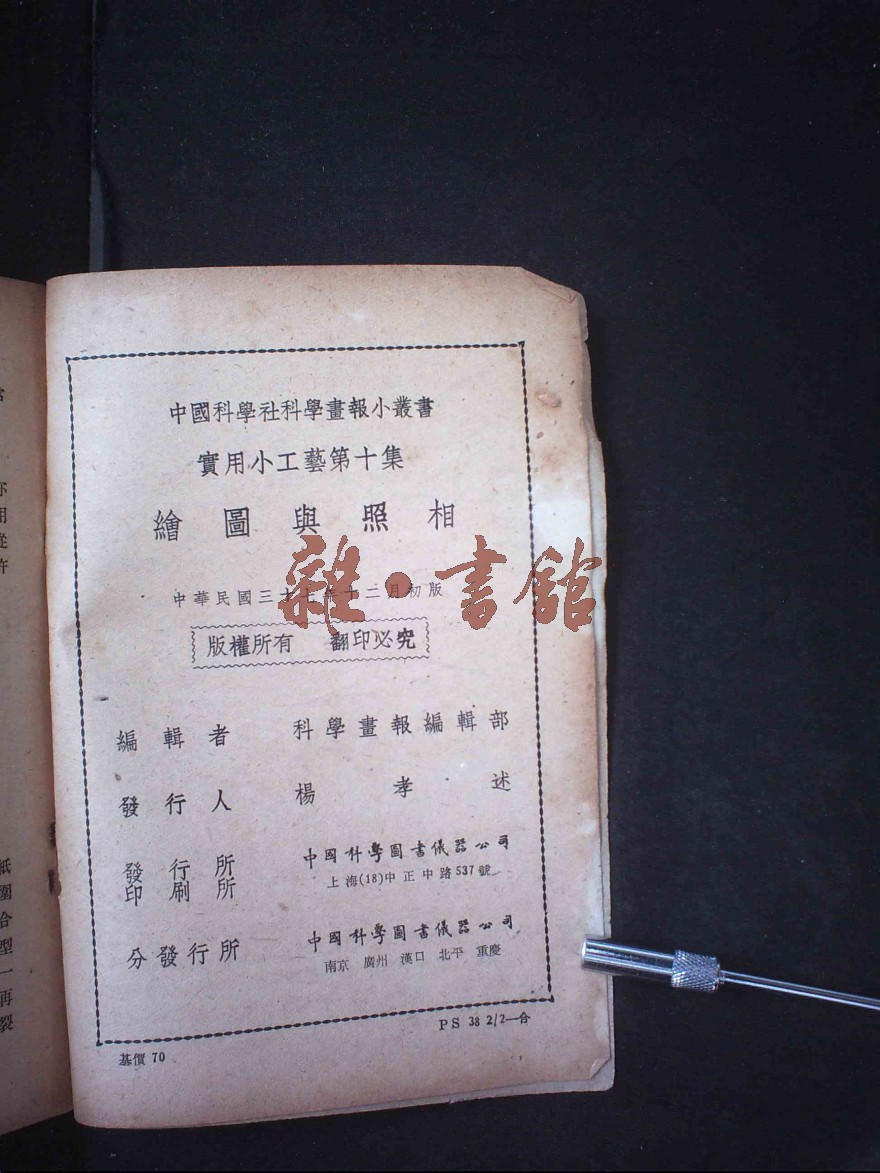 中國科學社科學畫報小叢書
實用小工藝第十集
繪圖與照相
中華民國三十七年十二月初版
雜·書館
版權所有 翻印必究
編輯者 科學畫報編輯部
發行人 楊孝述
發行所
印刷所
中國科學圖書儀器公司
上海(18)中正中路537號
分發行所
中國科學圖書儀器公司
南京 廣州 漢口 北平 重慶
PS 38 2/2—合
基價 70
用
從
許
紙
圍
合
型
一
再
裂